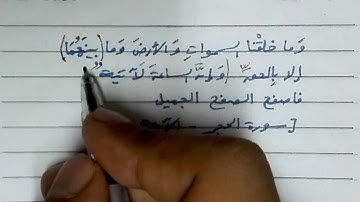 وَما خلقْنا السمواتِ وَالأرضَ وَما (بينَهُمَا)
إلا بِالحقِّ وَإنَّ الساعةَ لَآتية
فاصفح الصفح الجميل
[سورة الحجر -